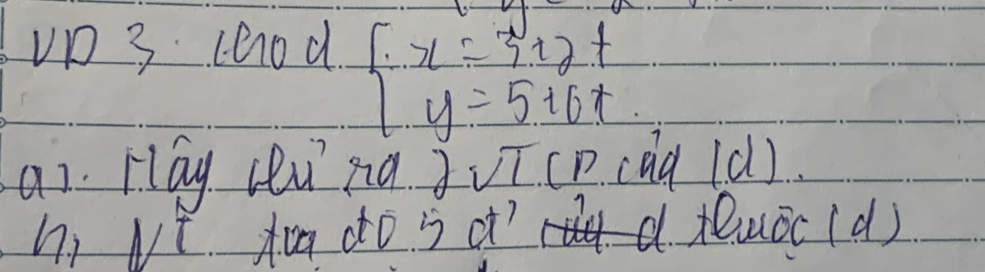 VD 3: cho d { x = 3 + 2t
y = 5 + 6t.
a). Hãy chỉ ra 2 VTCP của (d).
b, VT tọa độ 5 đ' thuộc (d)